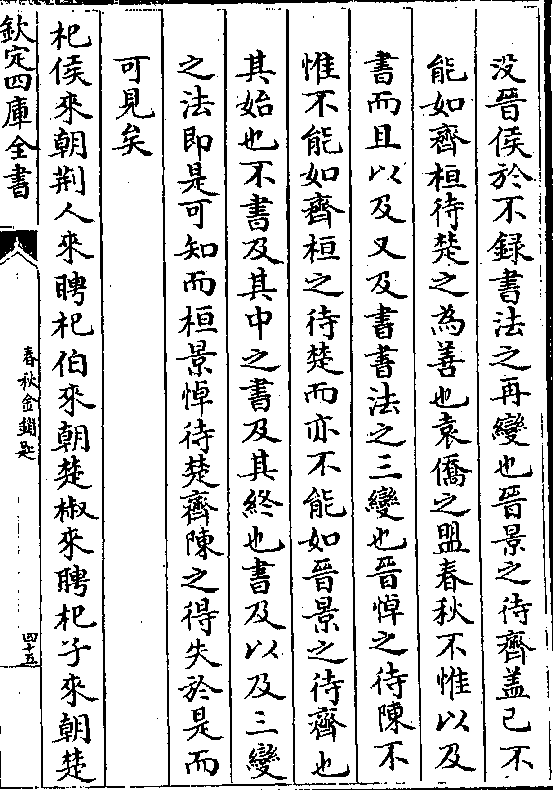 没晉侯於不録書法之再變也晉景之待齊盖已不
能如齊桓待楚之為善也袁僑之盟春秋不惟以及
書而且以及又及書書法之三變也晉悼之待陳不
惟不能如齊桓之待楚而亦不能如晉景之待齊也
其始也不書及其中之書及其終也書及以及三變
之法即是可知而桓景悼待楚齊陳之得失於是而
可見矣
杞侯來朝荆人來聘杞伯來朝楚椒來聘杞子來朝楚
欽定四庫全書
春秋金鎖匙
四十五